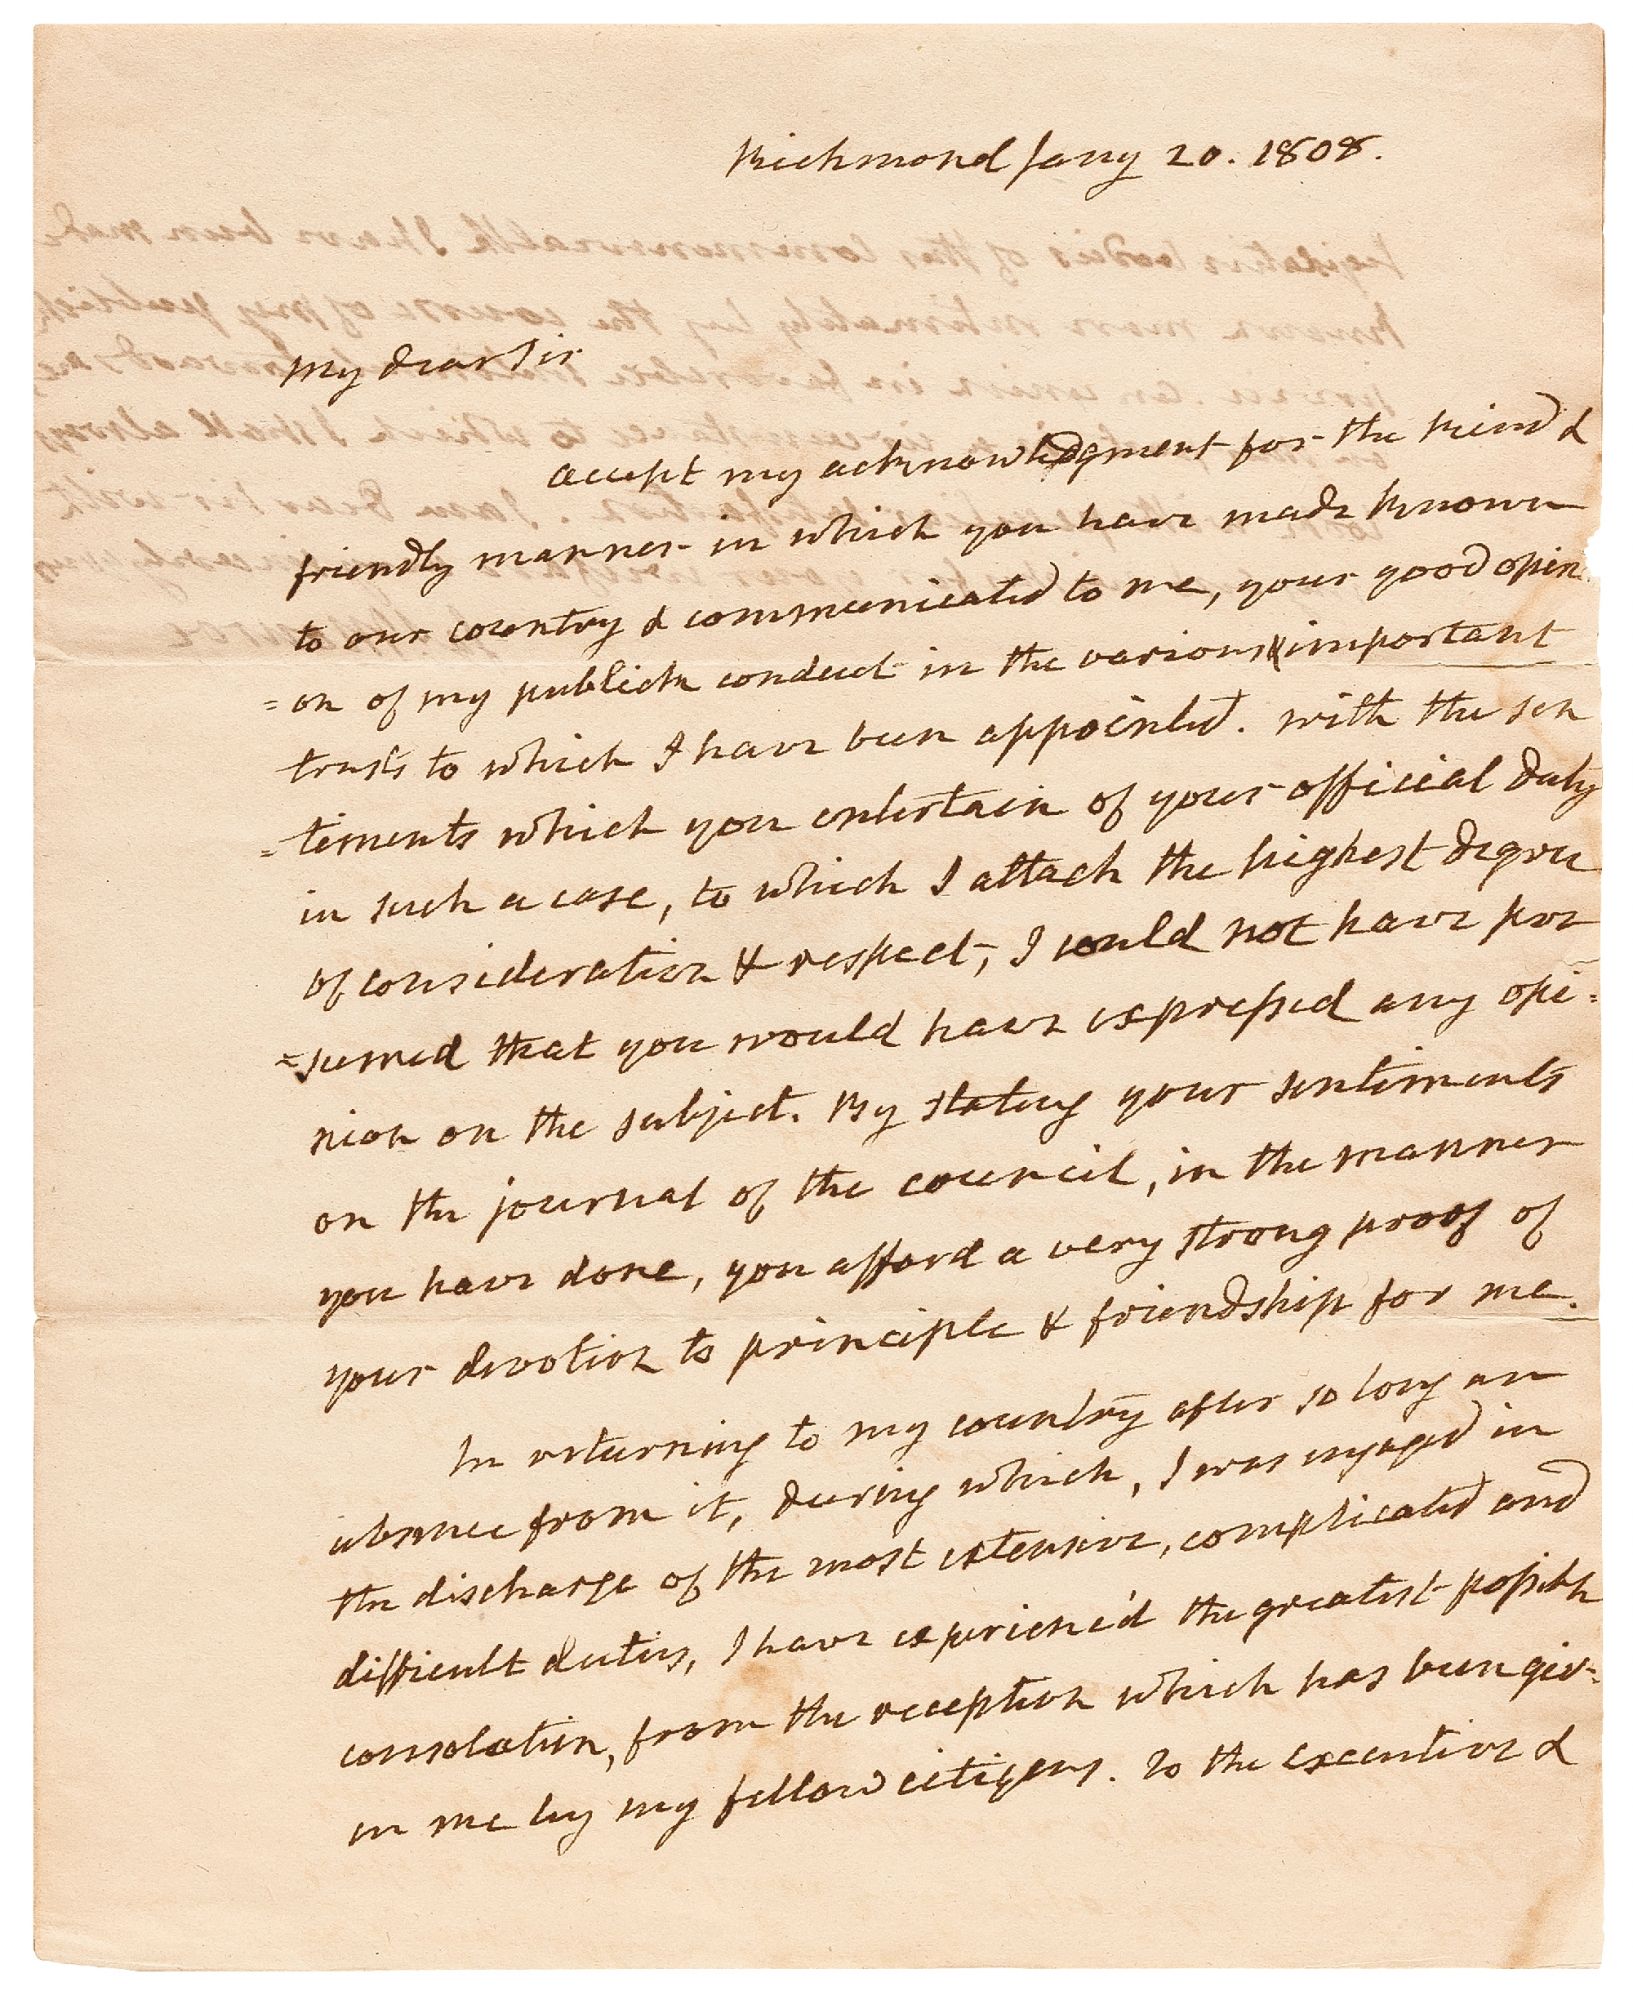 Richmond Jany 20. 1808.
My dear Sir
Accept my acknowledgment for the kind &
friendly manner in which you have made known
to our country & communicated to me, your good opin
=on of my publick conduct in the various & important
trusts to which I have been appointed. With the sen
=timents which you entertain of your official duty
in such a case, to which I attach the highest degree
of consideration & respect, I could not have pre
=sumed that you would have expressed any opi=
nion on the subject. By stating your sentiments
on the journal of the council, in the manner
you have done, you afford a very strong proof of
your devotion to principle & friendship for me.
In returning to my country after so long an
absence from it, during which, I was engaged in
the discharge of the most extensive, complicated and
difficult duties, I have experienc'd the greatest possible
consolation, from the reception which has been giv-
en me by my fellow citizens. To the executive &